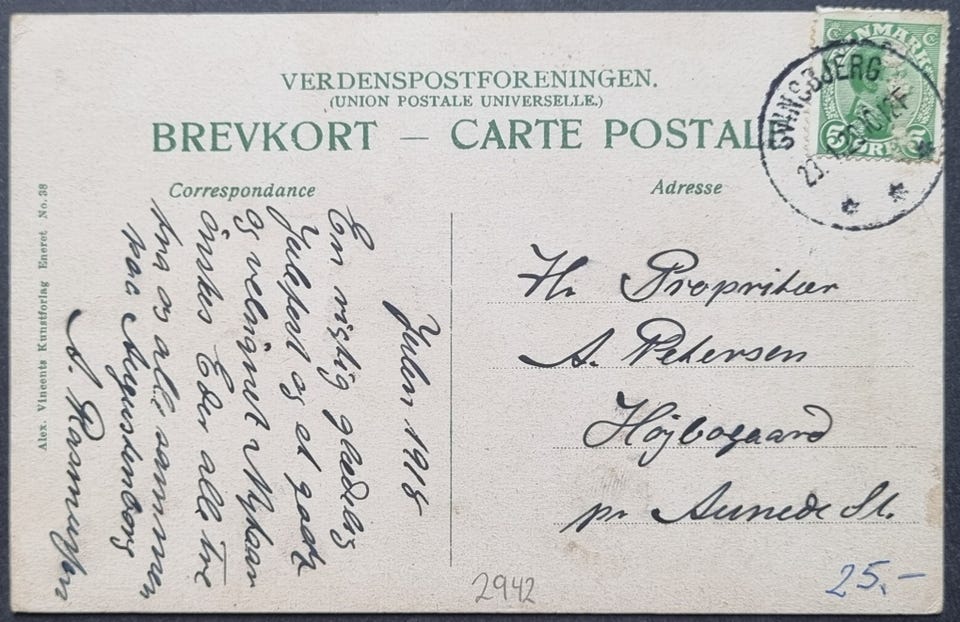 VERDENSPOSTFORENINGEN.
(UNION POSTALE UNIVERSELLE.)
BREVKORT — CARTE POSTALE
Correspondance
Adresse
DANMARK
5 ØRE 5
SVINSBJERG
Alex. Vincents Kunstforlag Eneret No. 38
Julen 1918
En rigtig glædelig
Julefest og et godt
og velsignet Nytaar
önskes Eder alle tre
fra os alle sammen
paa Augustenborg
A. Rasmussen
Hr Propritær
A. Petersen
Höjbogaard
pr Aunede St.
2942
25.-